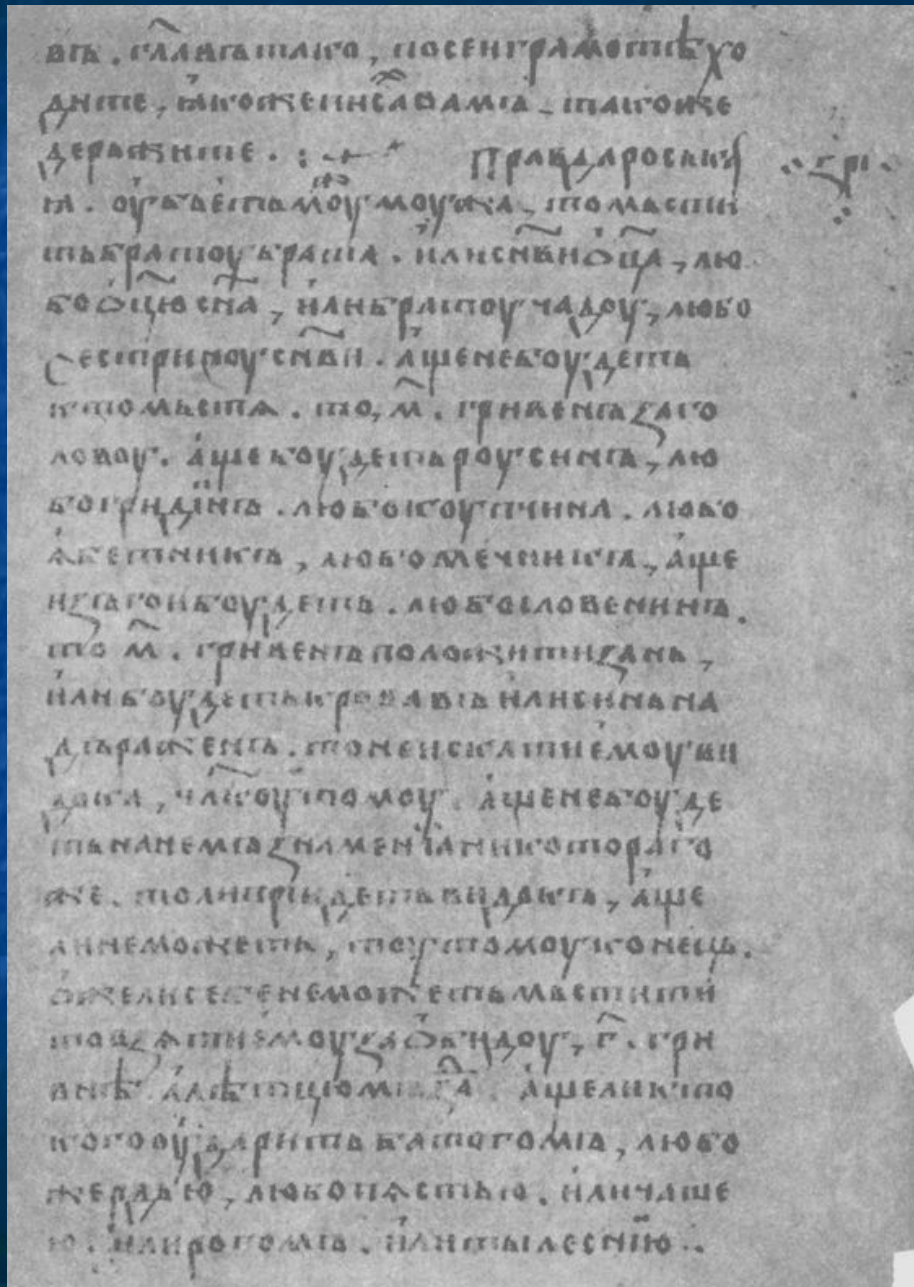 въ. гл҃ѧ имъ тако, посеиграмотѣ хо
дите, ꙗкоже исписа҃х вамъ. такоже
держите. правдароськаꙗ
ꙗ. оубьеть моужь моужа, томьсти
тьбратоубрата. илисн҃виоц҃а, лю
боѻц҃ю сн҃а, илибратоучадоу, любо
сестриноусн҃ви. ащенебоудеть
ктомьстѧ. то, м҃. гривенъ заго
ловоу. ащебоудетьроусинъ, лю
богридинъ. любокоупчина. любо
ѧбетникъ, любомечникъ, аще
изъгоибоудеть. любословенинъ.
то м҃. гривенъположитизань,
илибоудетькровавъилисиньна
дъраженъ. тонеискатиемоуви
дока, чл҃коутомоу. ащенебоуде
тьнанемъзнамениꙗникоторого
же. толиприидетьвидокъ, аще
линеможеть, тоутомоуконець.
ѻжелисебенеможетьмьстити
товзѧтиемоузаѻбидоу, г҃. гри
внѣ алѣтцюмъзда ащеликто
когооударитьбатогомъ, любо
жердью, любопѧстью. иличаше
ю. илирогомъ. илитылесниею..